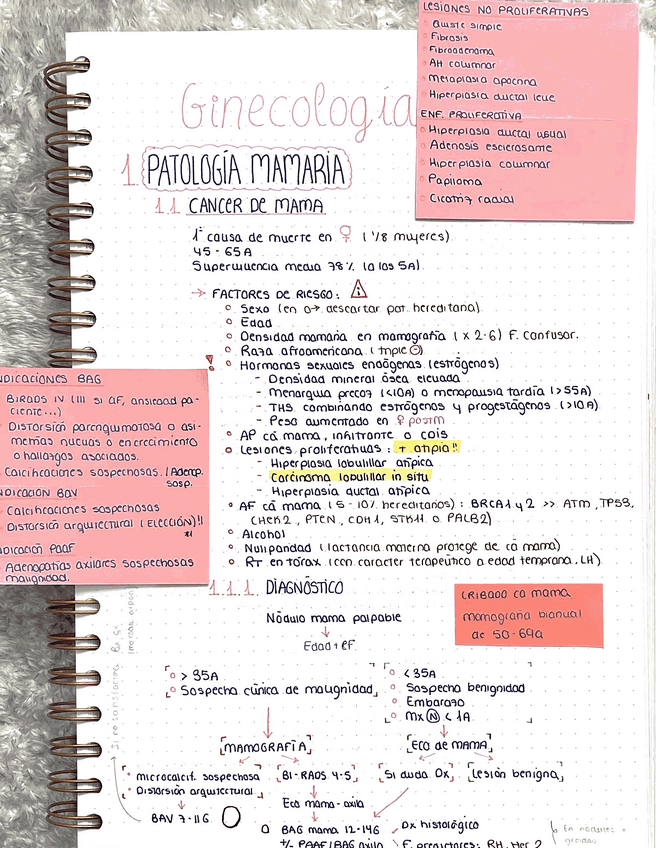 LESIONES NO PROLIFERATIVAS
Quiste simple
Fibrosis
Fibroadenoma
AH columnar
Metaplasia apocrina
Hiperplasia ductal leve
ENF. PROLIFERATIVA
Hiperplasia ductal usual
Adenosis esclerosante
Hiperplasia columnar
Papiloma
Cicatriz radial
Ginecología
1. PATOLOGÍA MAMARIA
1.1 CANCER DE MAMA
1ª causa de muerte en ♀ (1/8 mujeres)
45-65A
Supervivencia media 78% (a los 5A)
→ FACTORES DE RIESGO: ⚠
Sexo (en ♂ → descartar pat. hereditaria)
Edad
Densidad mamaria en mamografía (x 2-6) F. confusor.
Raza afroamericana (triple ⊖)
Hormonas sexuales endógenas (estrógenos)
- Densidad mineral ósea elevada
- Menarquia precoz (<10A) o menopausia tardía (>55A)
- THS combinando estrógenos y progestágenos (>10A)
- Peso aumentado en ♀ postm
AP cá mama, infiltrante o cdis
Lesiones proliferativas: + atipia!!
- Hiperplasia lobulillar atípica
- Carcinoma lobulillar in situ
- Hiperplasia ductal atípica
AF cá mama (5-10% hereditarios): BRCA1 y 2 >> ATM, TP53,
CHEK2, PTEN, CDH1, STK11 o PALB2)
Alcohol
Nuliparidad (lactancia materna protege de cá mama)
RT en tórax (con carácter terapéutico a edad temprana, LH)
INDICACIONES BAG
BIRADS IV (III si AF, ansiedad pa-
ciente...)
Distorsión parenquimatosa o asi-
metrías nuevas o en crecimiento
o hallazgos asociados.
Calcificaciones sospechosas. (Adenop.
sosp.
INDICACIÓN BAV
Calcificaciones sospechosas
Distorsión arquitectural (ELECCIÓN)!!
*1
INDICACIÓN PAAF
Adenopatías axilares sospechosas
malignidad.
1.1.1 DIAGNÓSTICO
CRIBADO ca mama
mamografía bianual
de 50-69a
Nódulo mama palpable
Edad + EF
> 35A
Sospecha clínica de malignidad
< 35A
Sospecha benignidad
Embarazo
Mx Ⓝ < 1A
MAMOGRAFÍA
Eco de MAMA
microcalcif. sospechosa
Distorsión arquitectural
BI-RADS 4-5
Si duda Dx
Lesión benigna
BAV 7-11G
Eco mama-axila
BAG mama 12-14G
+/- PAAF/BAG axila
Dx histológico
F. predictores: RH, Her 2